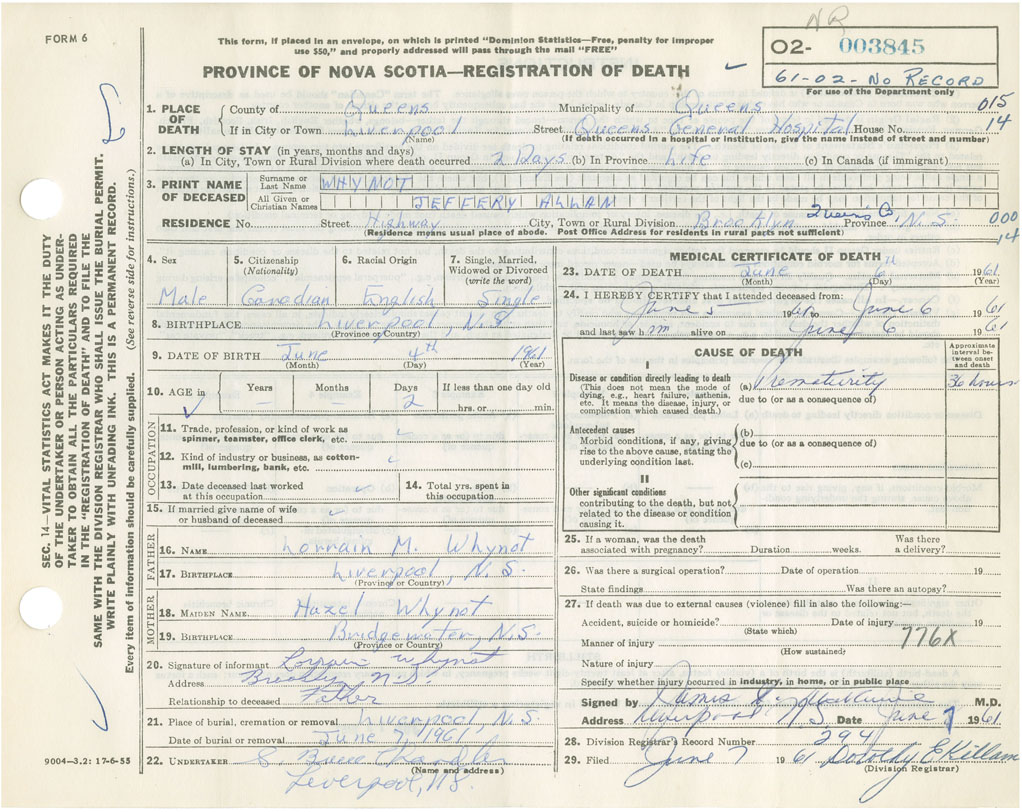 NR
FORM 6
This form, if placed in an envelope, on which is printed "Dominion Statistics—Free, penalty for improper
use $50," and properly addressed will pass through the mail "FREE"
PROVINCE OF NOVA SCOTIA—REGISTRATION OF DEATH
02- 003845
61-02-No RECORD
For use of the Department only
015
14
1. PLACE OF DEATH
County of Queens Municipality of Queens
If in City or Town Liverpool Street Queens General Hospital House No.
(Name) (If death occurred in a hospital or institution, give the name instead of street and number)
2. LENGTH OF STAY (in years, months and days)
(a) In City, Town or Rural Division where death occurred 2 Days (b) In Province Life (c) In Canada (if immigrant)
3. PRINT NAME OF DECEASED
Surname or Last Name WHYNOT
All Given or Christian Names JEFFERY ALLAN
RESIDENCE No. Street Highway City, Town or Rural Division Brooklyn Queens Co Province N.S.
000
14
(Residence means usual place of abode. Post Office Address for residents in rural parts not sufficient)
4. Sex
Male
5. Citizenship (Nationality)
Canadian
6. Racial Origin
English
7. Single, Married, Widowed or Divorced (write the word)
Single
8. BIRTHPLACE Liverpool, N.S
(Province or Country)
9. DATE OF BIRTH June 4th 1961
(Month) (Day) (Year)
10. AGE in
Years Months Days If less than one day old
2
hrs. or min.
OCCUPATION
11. Trade, profession, or kind of work as
spinner, teamster, office clerk, etc.
12. Kind of industry or business, as cotton-
mill, lumbering, bank, etc.
13. Date deceased last worked
at this occupation
14. Total yrs. spent in
this occupation
15. If married give name of wife
or husband of deceased
FATHER
16. NAME Lorrain M. Whynot
17. BIRTHPLACE Liverpool, N.S.
(Province or Country)
MOTHER
18. MAIDEN NAME Hazel Whynot
19. BIRTHPLACE Bridgewater, N.S.
(Province or Country)
20. Signature of informant Lorrain Whynot
Address Brooklyn N.S.
Relationship to deceased Father
21. Place of burial, cremation or removal Liverpool N.S.
Date of burial or removal June 7, 1961
22. UNDERTAKER Chandler
(Name and address)
Liverpool, N.S.
MEDICAL CERTIFICATE OF DEATH
23. DATE OF DEATH June 6th 1961
(Month) (Day) (Year)
24. I HEREBY CERTIFY that I attended deceased from:
June 5 1961 to June 6 1961
and last saw him alive on June 6 1961
CAUSE OF DEATH
Approximate interval between onset and death
I
Disease or condition directly leading to death
(This does not mean the mode of
dying, e.g., heart failure, asthenia,
etc. It means the disease, injury, or
complication which caused death.)
(a) Prematurity 36 hours
due to (or as a consequence of)
Antecedent causes
Morbid conditions, if any, giving
rise to the above cause, stating the
underlying condition last.
(b)
due to (or as a consequence of)
(c)
II
Other significant conditions
contributing to the death, but not
related to the disease or condition
causing it.
25. If a woman, was the death Was there
associated with pregnancy? Duration weeks. a delivery?
26. Was there a surgical operation? Date of operation 19
State findings Was there an autopsy?
27. If death was due to external causes (violence) fill in also the following:—
Accident, suicide or homicide? Date of injury 19
(State which)
776X
Manner of injury
(How sustained)
Nature of injury
Specify whether injury occurred in industry, in home, or in public place
Signed by James M.D.
Address Liverpool N.S. Date June 7 1961
28. Division Registrar's Record Number 294
29. Filed June 7 1961 Dorothy E Killam
(Division Registrar)
SEC. 14—VITAL STATISTICS ACT MAKES IT THE DUTY
OF THE UNDERTAKER OR PERSON ACTING AS UNDER-
TAKER TO OBTAIN ALL THE PARTICULARS REQUIRED
IN THE "REGISTRATION OF DEATH" AND TO FILE THE
SAME WITH THE DIVISION REGISTRAR WHO SHALL ISSUE THE BURIAL PERMIT.
WRITE PLAINLY WITH UNFADING INK. THIS IS A PERMANENT RECORD.
Every item of information should be carefully supplied. (See reverse side for instructions.)
9004—3,2: 17-6-55